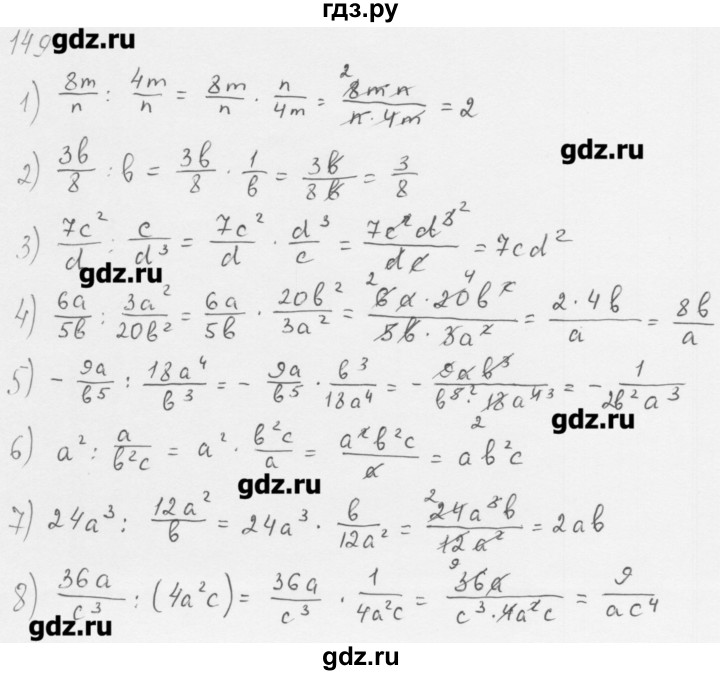 гдз.ру
149 gdz.ru
1) 8m/n : 4m/n = 8m/n · n/4m = 2 8mn/n·4m = 2
2) 3b/8 : b = 3b/8 · 1/b = 3b/8b = 3/8
gdz.ru
3) 7c²/d : c/d³ = 7c²/d · d³/c = 7c²d³ ²/dc = 7cd²
gdz.ru
4) 6a/5b : 3a²/20b² = 6a/5b · 20b²/3a² = 2 6a · 4 20b²/5b · 3a² = 2·4b/a = 8b/a
5) - 9a/b⁵ : 18a⁴/b³ = - 9a/b⁵ · b³/18a⁴ = - 9ab³/b⁵ ² · 2 18a⁴ ³ = - 1/2b²a³
gdz.ru
6) a² : a/b²c = a² · b²c/a = a²b²c/a = ab²c
gdz.ru
7) 24a³ : 12a²/b = 24a³ · b/12a² = 2 24a³b/12a² = 2ab
8) 36a/c³ : (4a²c) = 36a/c³ · 1/4a²c = 9 36a/c³·4a²c = 9/ac⁴
gdz.ru
gdz.ru